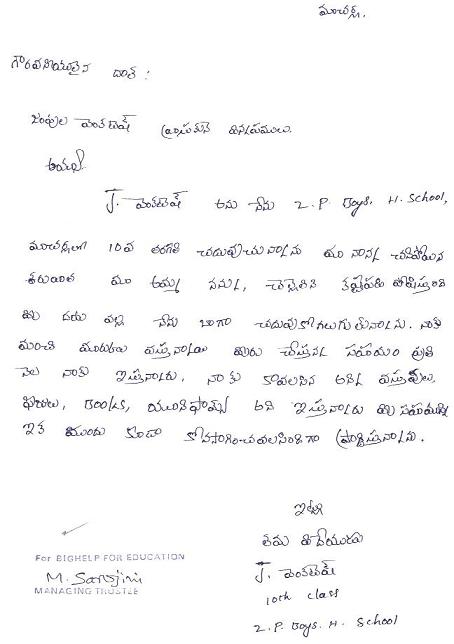 మాచర్ల.
గౌరవనీయులైన దాత :
జంపుల వెంకటేష్ వ్రాయునది విన్నపములు.
అయ్యా
J. వెంకటేష్ అను నేను Z. P. Boys. H. School,
మాచర్లలో 10వ తరగతి చదువుచున్నాను మా నాన్న చనిపోయిన
తరువాత మా అమ్మ నన్ను, చెల్లెలిని కష్టపడి పోషిస్తుంది
మీ దయ వల్ల నేను బాగా చదువుకోగలుగుతున్నాను. నాకు
మంచి మార్కులు వస్తున్నాయి మీరు చేస్తున్న సహాయం ప్రతి
నెల నాకు ఇస్తున్నారు, నాకు కావలసిన అన్ని వస్తువులు,
ఫీజులు, Books, యూనిఫామ్స్ అన్ని ఇస్తున్నారు మీ సహాయాన్ని
ఇక ముందు కూడా కొనసాగించవలసిందిగా ప్రార్థిస్తున్నాను.
ఇట్లు
తమ విదేయుడు
J. వెంకటేష్
10th class
Z. P. Boys. H. School
For BIGHELP FOR EDUCATION
M. Sarojini
MANAGING TRUSTEE